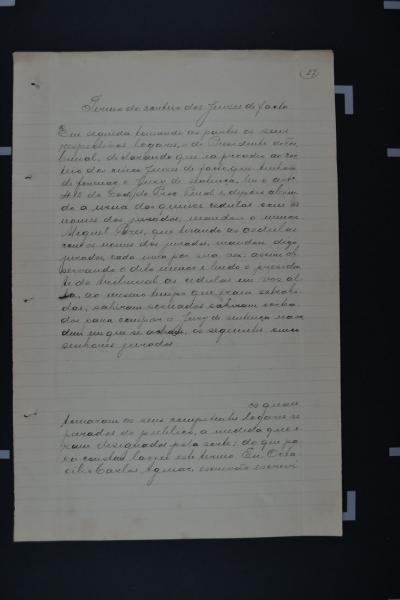 27
Termo do sorteio dos Juizes de facto
Em seguida tomando as partes os seus
respectivos logares, o dr. Presidente do Tri-
bunal, declarando que ia proceder ao sor-
teio dos cinco Juizes de facto, que tinham
de formar o Jury de sentença, leu o art.
do Cod. do Proc. Penal e depois abrin-
do a urna das cedulas com os
nomes dos jurados, mandou o menor
Miguel Pires, que tirando as cedulas
com os nomes dos jurados, mandou, digo,
jurados, cada uma por sua vez: assim ob-
servando o dito menor e lendo o presiden-
te do tribunal as cedulas em voz al-
ta, ao mesmo tempo que eram extrahi-
das, sahiram sorteados
dos para compor o Jury de sentença na or-
dem em que se acham, os seguintes cinco
senhores jurados:
os quaes
tomaram os seus competentes logares se-
parados do publico, a medida que e-
ram designados pela sorte; do que pa-
ra constar lavrei este termo. Eu, Octa-
cilio Carlos Aguiar, escrivão escrevi